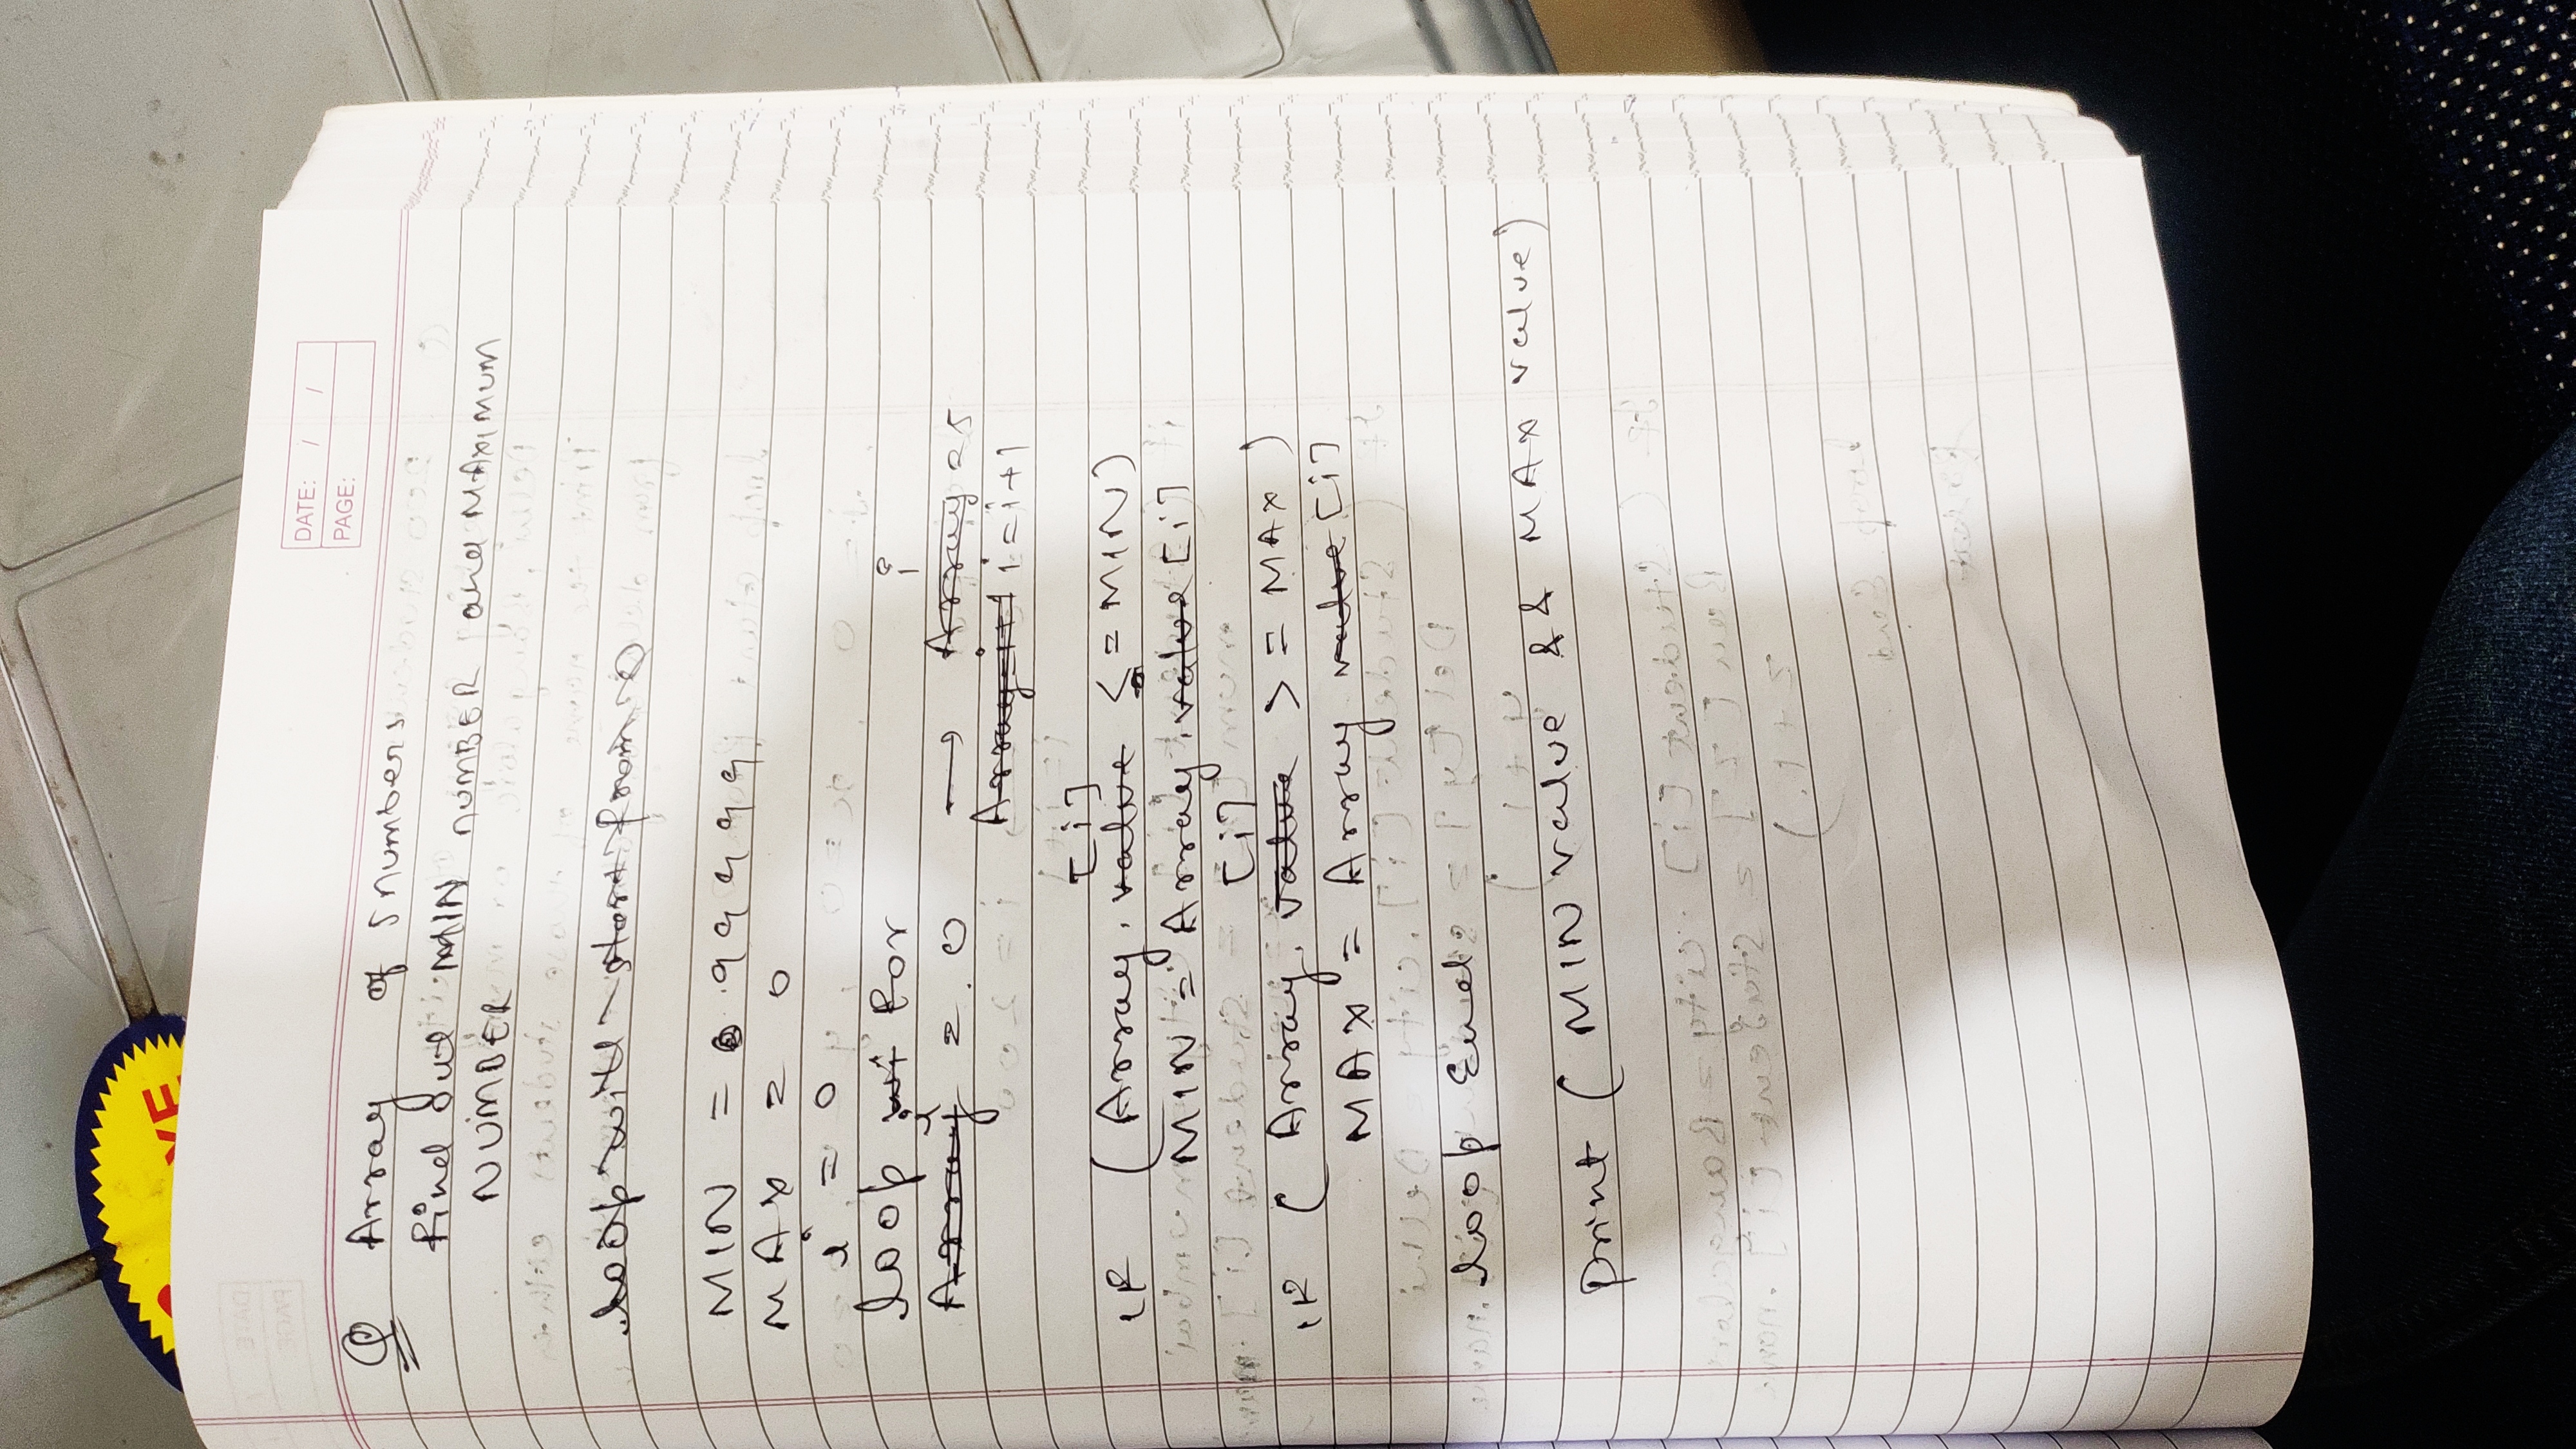 XE
DATE: / /
PAGE:
Q Array of 5 numbers
find out MIN NUMBER and MAXIMUM
NUMBER
loop will start from 0
MIN = 99999
MAX = 0
i = 0
loop for
i
Array = 0 → Array = 5
Array=i+1 i=i+1
[i]
if (Array.value <=MIN)
MIN = Array.value [i]
[i]
if ( Array.value >= MAX )
MAX = Array value [i]
loop End
print ( MIN value && MAX value)